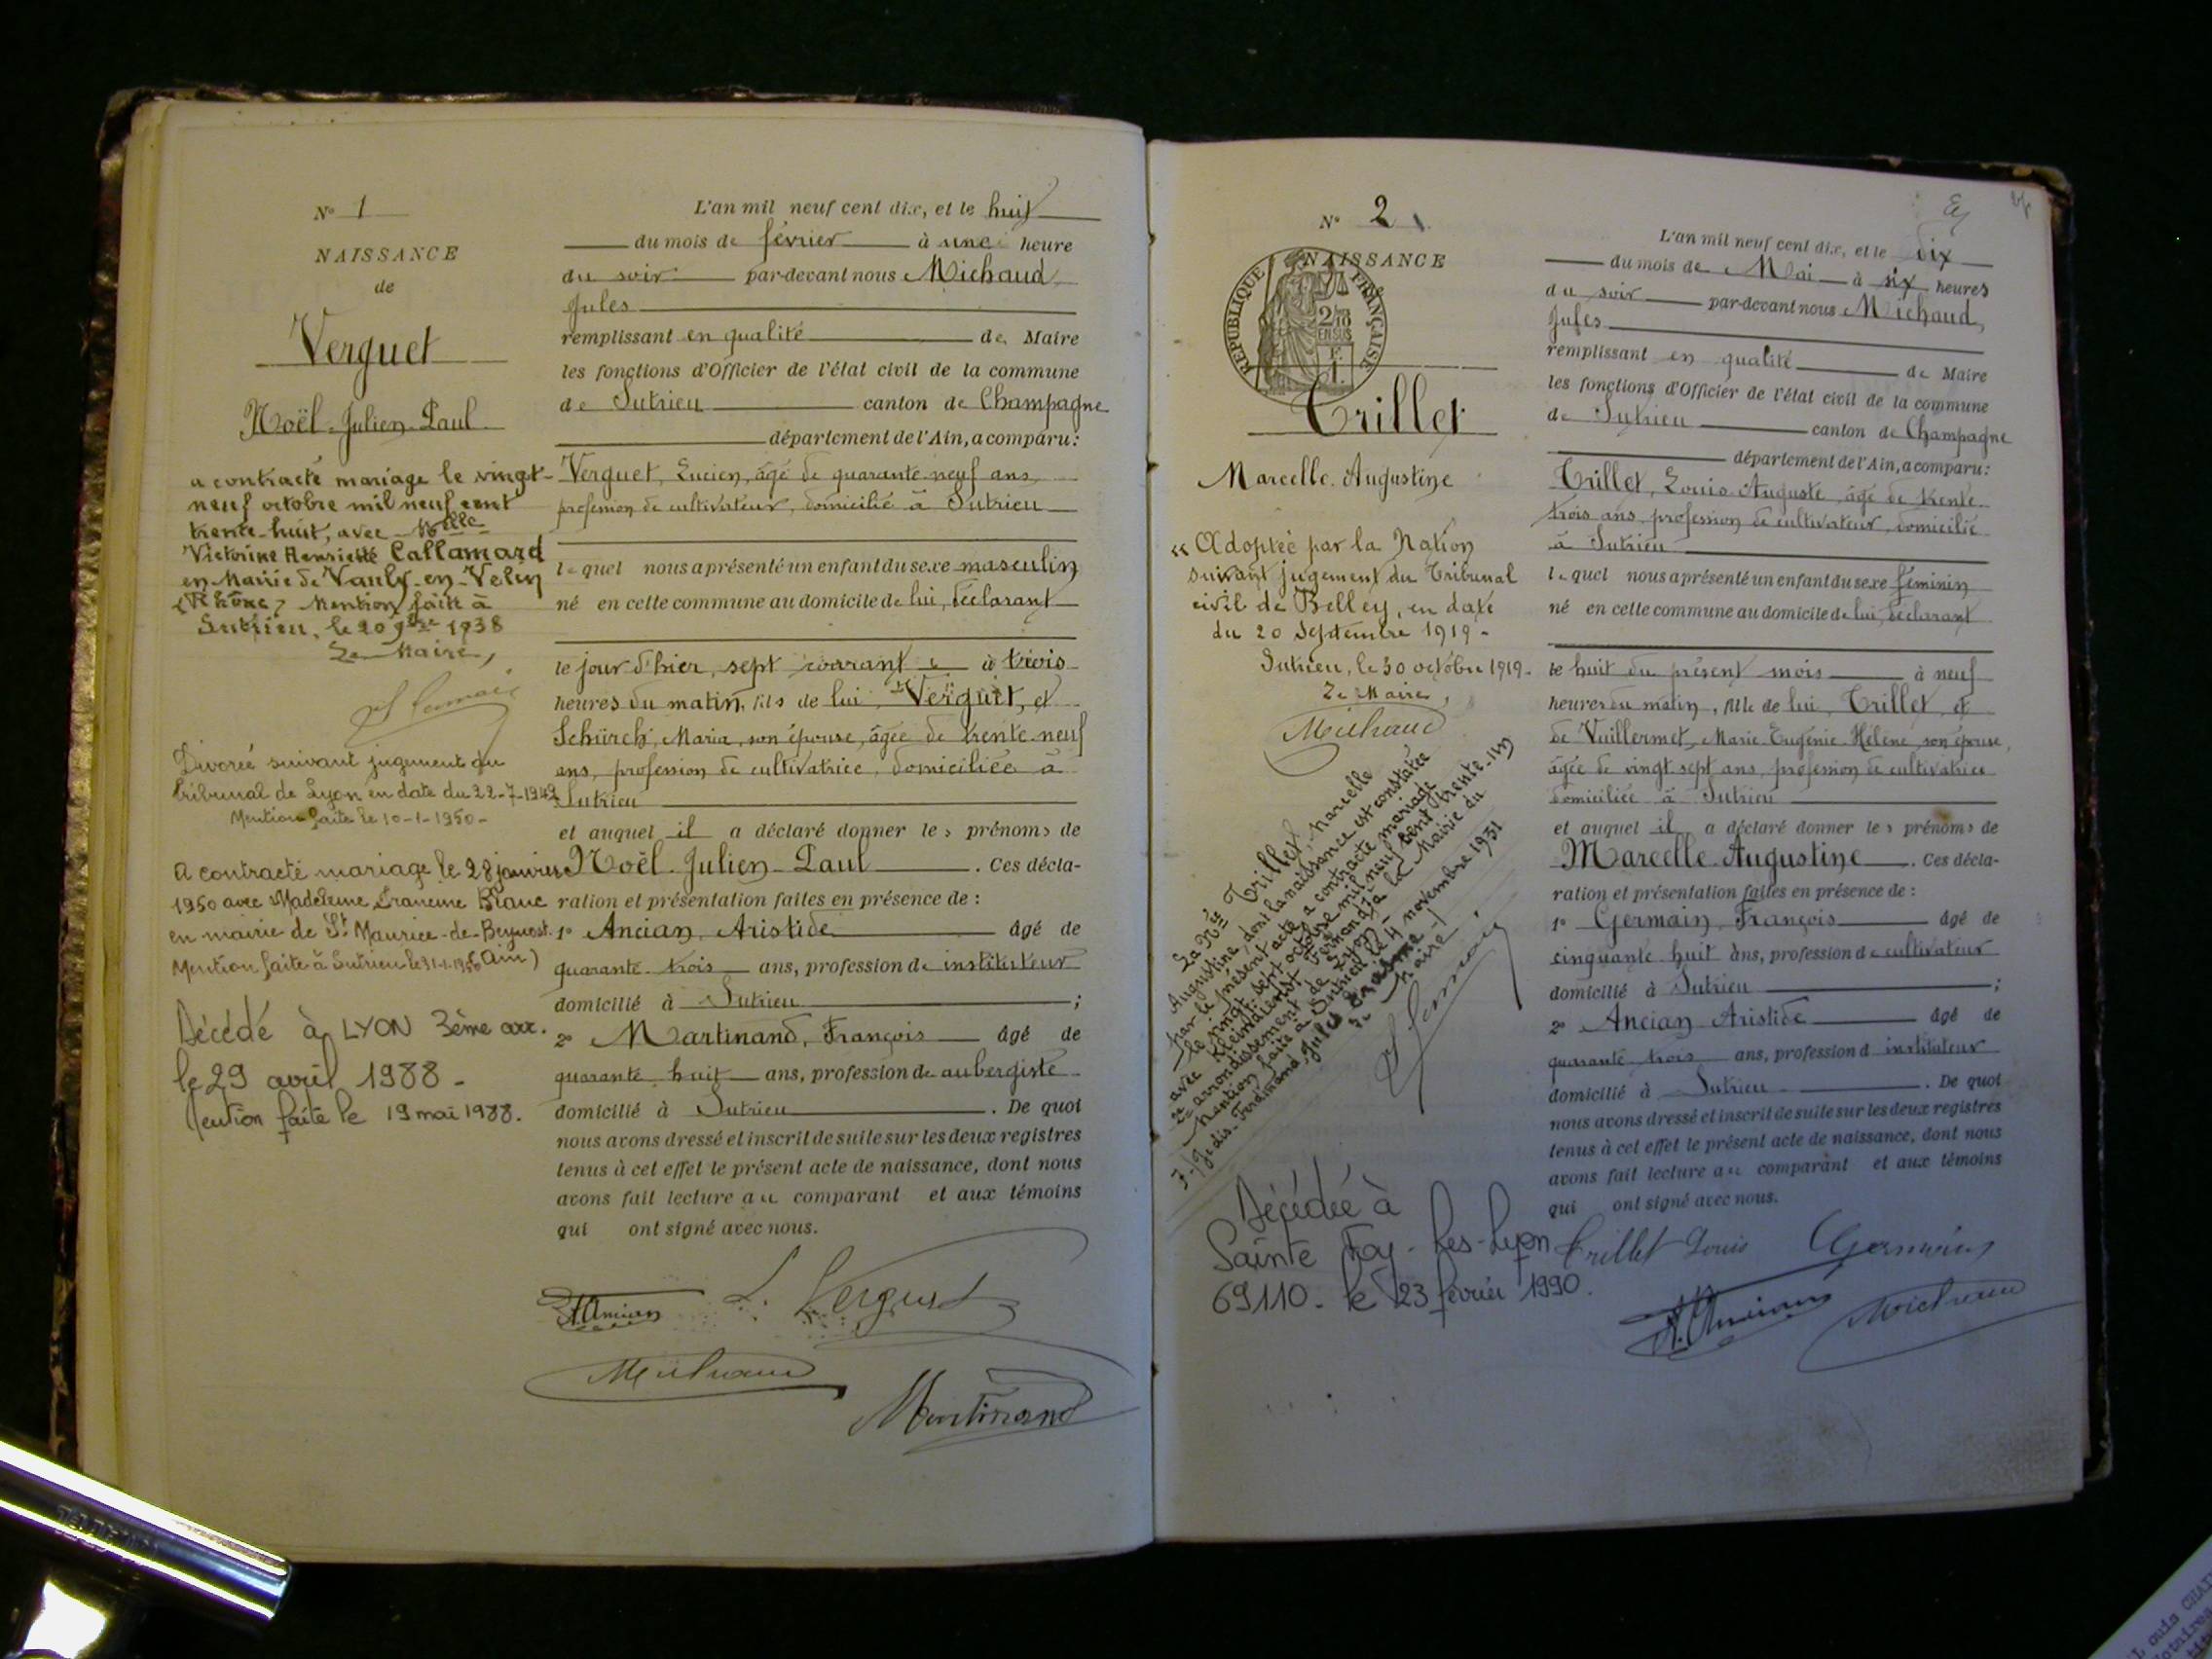 N° 1
NAISSANCE
de
Verguet
Noël-Julien-Paul
a contracté mariage le vingt-
neuf octobre mil neuf cent
trente-huit, avec Melle
Victorine Henriette Callamard
en Mairie de Vaulx-en-Velin
(Rhône) Mention faite à
Sutrieu, le 20 9bre 1938
Le Maire,
Divorcé suivant jugement du
tribunal de Lyon en date du 22-7-1949
Mention faite le 10-1-1950-
A contracté mariage le 28 janvier
1950 avec Madeleine Francine Blanc
en mairie de St Maurice-de-Beynost
(Ain)
Mention faite à Sutrieu le 31-1-1950
Décédé à LYON 3ème arr.
le 29 avril 1988-
Mention faite le 19 mai 1988.
L'an mil neuf cent dix, et le huit
du mois de février à une heure
du soir par-devant nous Michaud
Jules
remplissant en qualité de Maire
les fonctions d'Officier de l'état civil de la commune
de Sutrieu canton de Champagne
département de l'Ain, a comparu:
Verguet, Lucien, âgé de quarante-neuf ans,
profession de cultivateur, domicilié à Sutrieu
lequel nous a présenté un enfant du sexe masculin
né en cette commune au domicile de lui, déclarant
le jour d'hier, sept courant à trois
heures du matin, fils de lui, Verguet, et
Schürch, Maria, son épouse, âgée de trente-neuf
ans, profession de cultivatrice, domiciliée à
Sutrieu
et auquel il a déclaré donner les prénoms de
Noël-Julien-Paul. Ces décla-
ration et présentation faites en présence de :
1° Ancian, Aristide âgé de
quarante-trois ans, profession de instituteur
domicilié à Sutrieu ;
2° Martinand, François âgé de
quarante-huit ans, profession de aubergiste
domicilié à Sutrieu. De quoi
nous avons dressé et inscrit de suite sur les deux registres
tenus à cet effet le présent acte de naissance, dont nous
avons fait lecture au comparant et aux témoins
qui ont signé avec nous.
A. Ancian L. Verguet
Michaud
Martinand
N° 2
NAISSANCE
RÉPUBLIQUE FRANÇAISE
2/10
EN SUS
Trillet
Marcelle-Augustine
"Adoptée par la Nation
suivant jugement du Tribunal
civil de Belley, en date
du 20 Septembre 1919-
Sutrieu, le 30 octobre 1919-
Le Maire,
Michaud
La Née Trillet, Marcelle
Augustine, dont la naissance est constatée
par le présent acte, a contracté mariage
le vingt-sept octobre mil neuf cent trente-un
avec Fernand à la Mairie du
arrondissement de Lyon
Mention faite à Sutrieu le 4 novembre 1931
Maire
Décédée à
Sainte Foy-les-Lyon
69110- le 23 février 1990.
L'an mil neuf cent dix, et le dix
du mois de Mai à six heures
du soir par-devant nous Michaud,
Jules
remplissant en qualité de Maire
les fonctions d'Officier de l'état civil de la commune
de Sutrieu canton de Champagne
département de l'Ain, a comparu:
Trillet, Louis-Auguste, âgé de trente-
trois ans, profession de cultivateur, domicilié
à Sutrieu
lequel nous a présenté un enfant du sexe féminin
né en cette commune au domicile de lui, déclarant
le huit du présent mois à neuf
heures du matin, fille de lui, Trillet, et
de Vuillermet, Marie-Eugénie-Hélène, son épouse,
âgée de vingt-sept ans, profession de cultivatrice
domiciliée à Sutrieu
et auquel il a déclaré donner les prénoms de
Marcelle-Augustine. Ces décla-
ration et présentation faites en présence de :
1° Germain, François âgé de
cinquante-huit ans, profession de cultivateur
domicilié à Sutrieu ;
2° Ancian Aristide âgé de
quarante-trois ans, profession d instituteur
domicilié à Sutrieu. De quoi
nous avons dressé et inscrit de suite sur les deux registres
tenus à cet effet le présent acte de naissance, dont nous
avons fait lecture au comparant et aux témoins
qui ont signé avec nous.
Trillet Louis Germain
A. Ancian Michaud